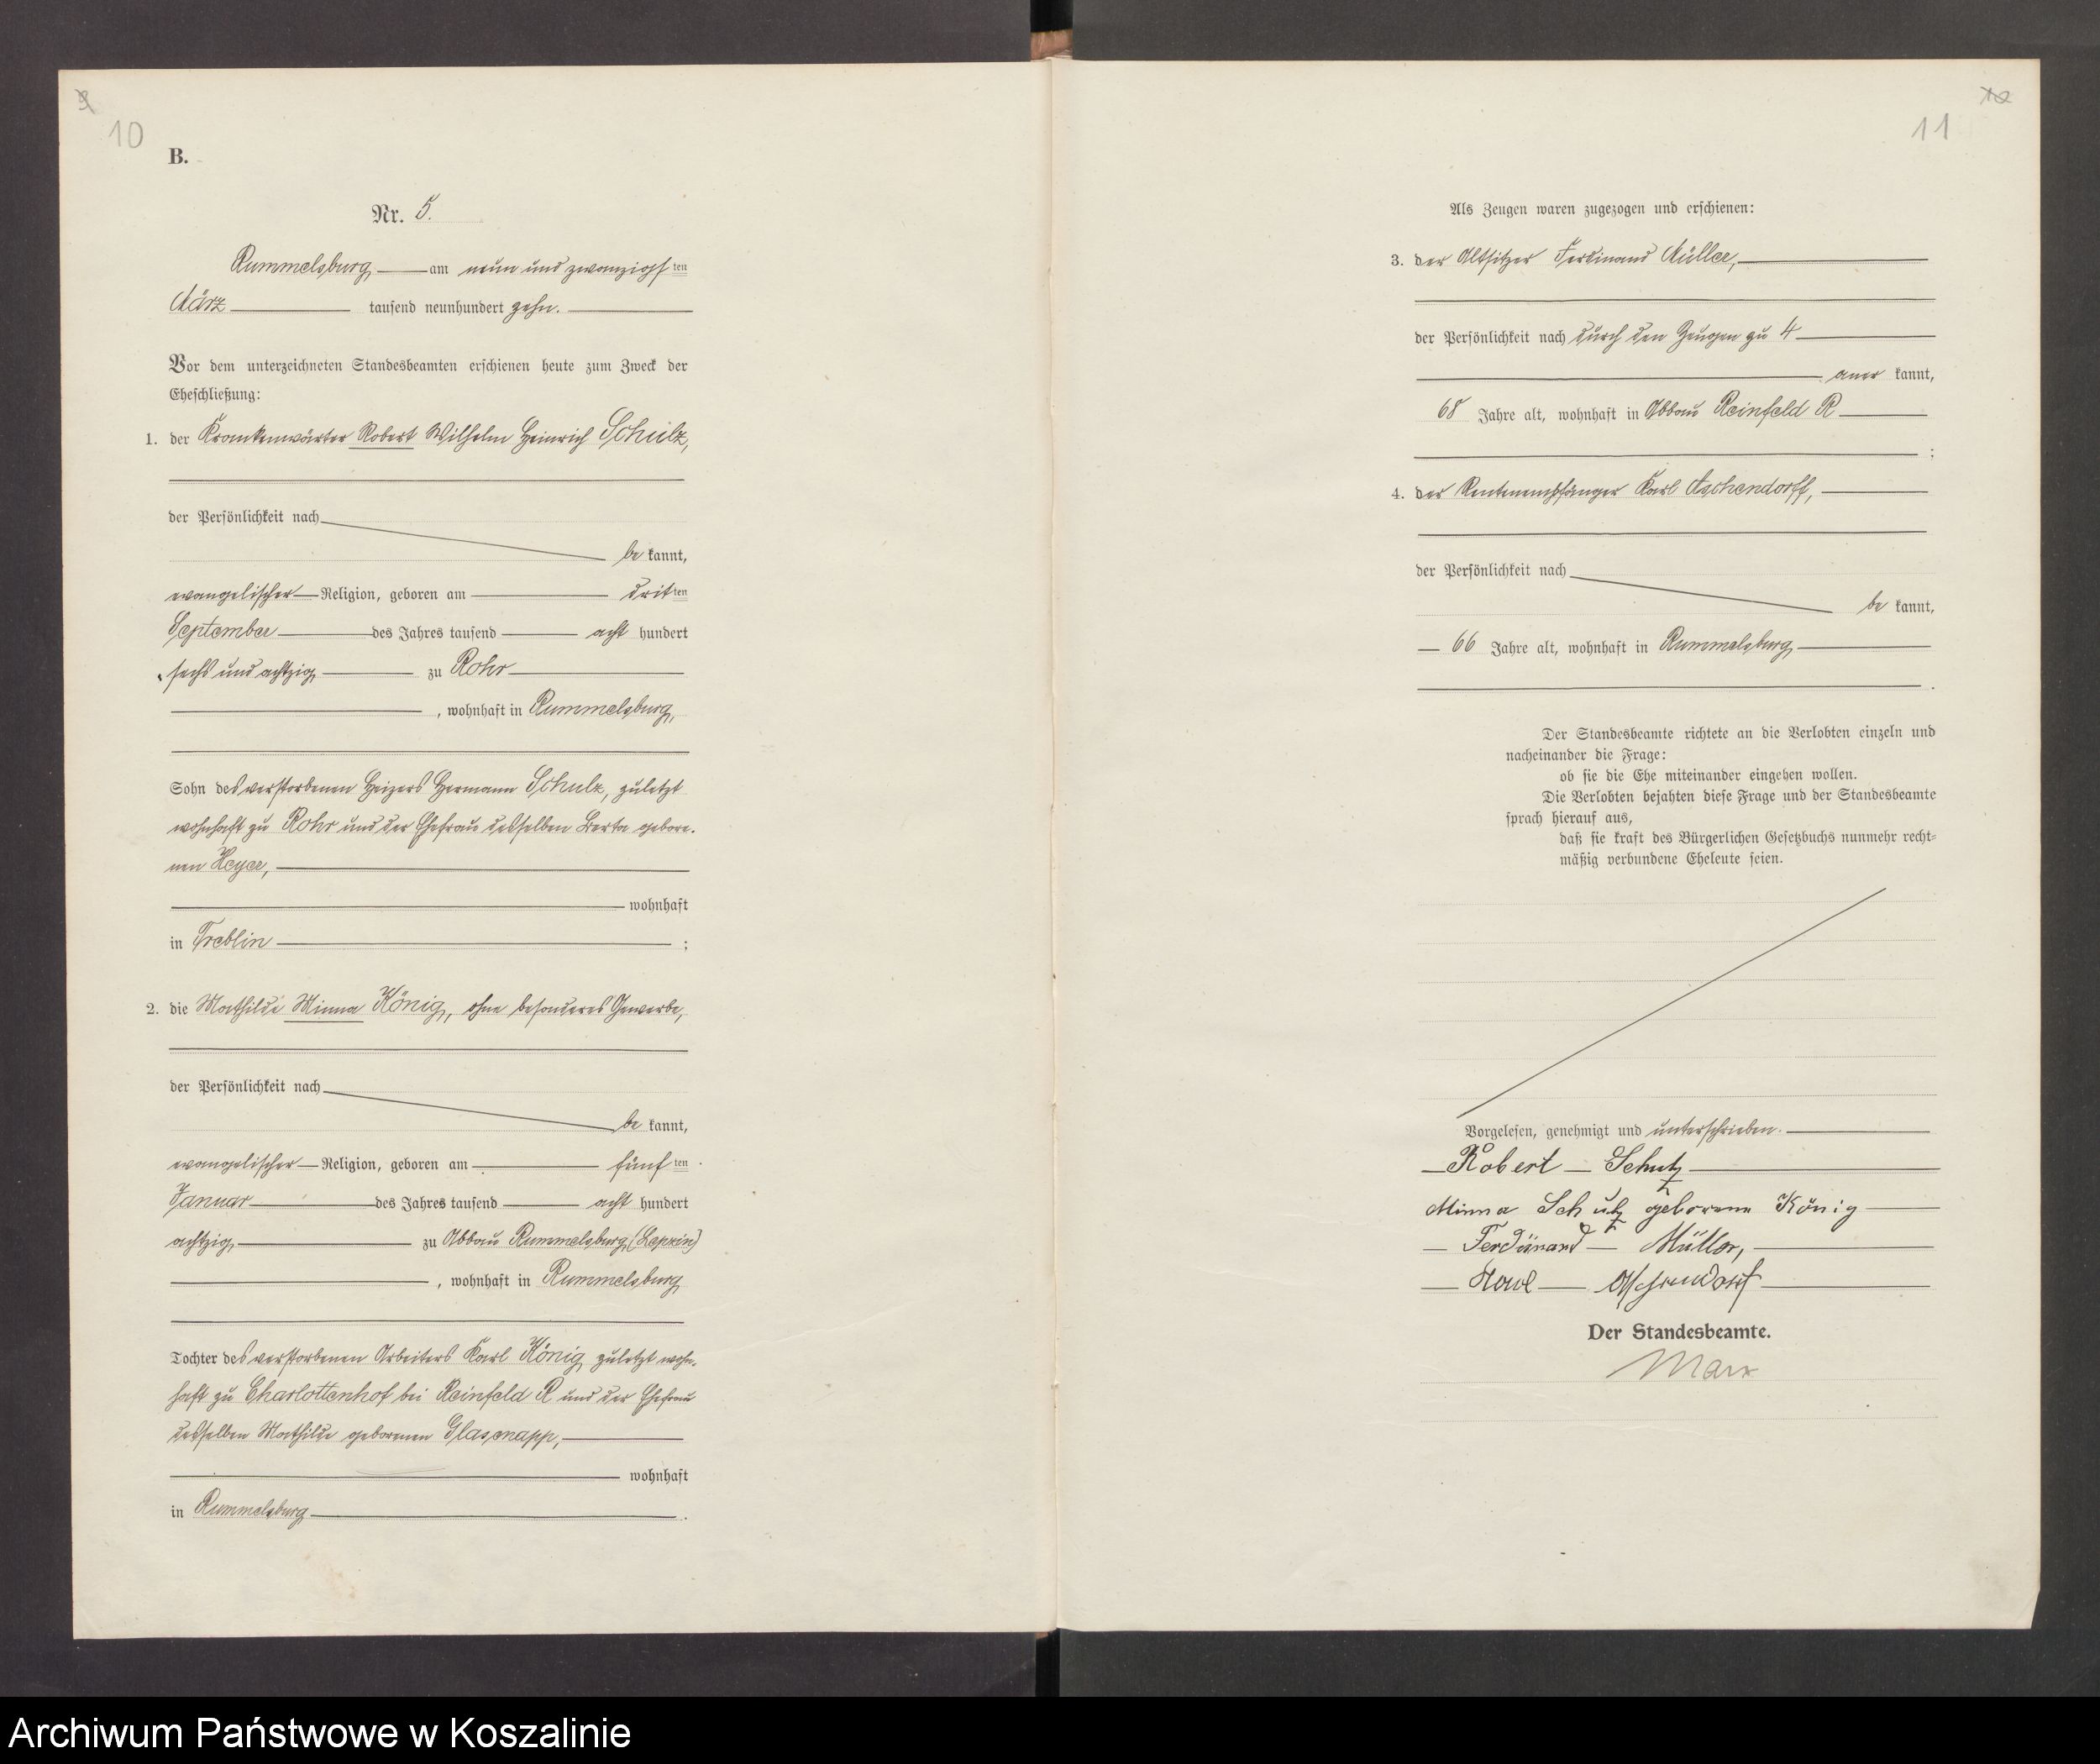 9
10
B.
Nr. 5.
Rummelsburg, am neun und zwanzigsten
März tausend neunhundert zehn.
Vor dem unterzeichneten Standesbeamten erschienen heute zum Zweck der
Eheschließung:
1. der Krankenwärter Robert Wilhelm Heinrich Schulz,
der Persönlichkeit nach
bekannt,
evangelischer Religion, geboren am dritten
September des Jahres tausend acht hundert
sechs und achtzig, zu Rohr
, wohnhaft in Rummelsburg,
Sohn des verstorbenen Heizers Hermann Schulz, zuletzt
wohnhaft zu Rohr und der Ehefrau desselben Berta gebore-
nen Heyer,
wohnhaft
in Treblin ;
2. die Mathilde Minna König, ohne besonderes Gewerbe,
der Persönlichkeit nach
bekannt,
evangelischer Religion, geboren am fünften
Januar des Jahres tausend acht hundert
achtzig, zu Abbau Rummelsburg, (Lepzin)
, wohnhaft in Rummelsburg
Tochter des verstorbenen Arbeiters Karl König, zuletzt wohn-
haft zu Charlottenhof bei Reinfeld R und der Ehefrau
desselben Mathilde geborenen Glasenapp,
wohnhaft
in Rummelsburg .
10
11
Als Zeugen waren zugezogen und erschienen:
3. der Altsitzer Ferdinand Müller,
der Persönlichkeit nach durch den Zeugen zu 4
anerkannt,
68 Jahre alt, wohnhaft in Abbau Reinfeld R
;
4. der Rentenempfänger Karl Aschendorff,
der Persönlichkeit nach
bekannt,
66 Jahre alt, wohnhaft in Rummelsburg,
.
Der Standesbeamte richtete an die Verlobten einzeln und
nacheinander die Frage:
ob sie die Ehe miteinander eingehen wollen.
Die Verlobten bejahten diese Frage und der Standesbeamte
sprach hierauf aus,
daß sie kraft des Bürgerlichen Gesetzbuchs nunmehr recht-
mäßig verbundene Eheleute seien.
Vorgelesen, genehmigt und unterschrieben.
Robert Schulz
Minna Schulz geborene König
Ferdinand Müller,
Karl Aschendorf
Der Standesbeamte.
Marx
Archiwum Państwowe w Koszalinie